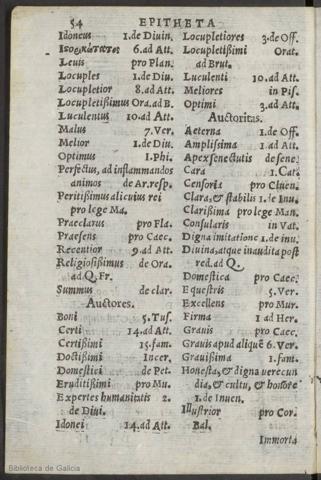 54 EPITHETA
Idoneus 1. de Diuin.
Ισοκράτατος 6. ad Att.
Leuis pro Plan.
Locuples 1. de Diu.
Locupletior 8. ad Att.
Locupletißimus Ora. ad B.
Luculentus 10. ad Att.
Malus 7. Ver.
Melior 1. de Diu.
Optimus 1. Phi.
Perfectus, ad inflammandos
animos de Ar. resp.
Peritißimus alicuius rei
pro lege Ma.
Praeclarus pro Fla.
Praesens pro Caec.
Recentior 9. ad Att.
Religiosißimus de Ora.
ad Q. Fr.
Summus de clar.
Auctores.
Boni 5. Tus.
Certi 14. ad Att.
Certißimi 15. fam.
Doctißimi Incer.
Domestici de Pet.
Eruditißimi pro Mu.
Expertes humanitatis 2.
de Diui.
Idonei 14. ad Att.
Locupletiores 3. de Off.
Locupletißimi Orat.
ad Brut.
Luculenti 10. ad Att.
Meliores in Pis.
Optimi 3. ad Att.
Auctoritas.
Aeterna 1. de Off.
Amplißima 1. ad Att.
Apex senectutis de sene.
Cara 1. Cat.
Censoria pro Cluen.
Clara, & stabilis 1. de Inu.
Clarißima pro lege Man.
Consularis in Vat.
Digna imitatione 1. de inu.
Diuina, atque inaudita post
red. ad Q.
Domestica pro Caec.
Equestris 5. Ver.
Excellens pro Mur.
Firma 1 ad Her.
Grauis pro Caec.
Grauis apud aliquē 6. Ver.
Grauißima 1. fam.
Honesta, & digna verecun
dia, & cultu, & honore
1. de Inuen.
Illustrior pro Cor.
Bal.
Immorta
Biblioteca de Galicia